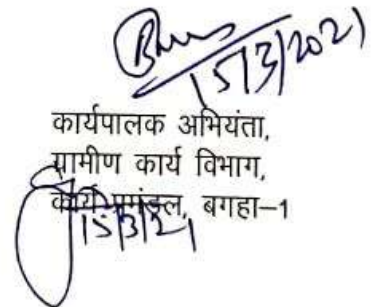 15/3/2021
कार्यपालक अभियंता,
ग्रामीण कार्य विभाग,
कार्य प्रमंडल, बगहा-1
15/3/21